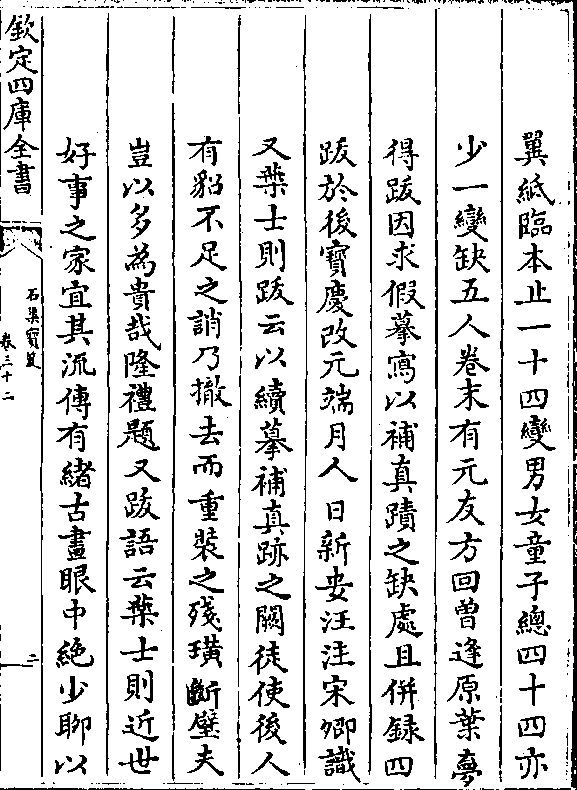 翼紙臨本止一十四變男女童子總四十四亦
少一變缺五人卷末有元友方回曽逢原葉夢
得跋因求假摹寫以補真蹟之缺處且併録四
跋於後寶慶改元端月人日新安汪注宋卿識
又葉士則跋云以續摹補真跡之闕徒使後人
有貂不足之誚乃撤去而重裝之殘璜斷璧夫
豈以多為貴哉隆禮題又跋語云葉士則近世
好事之家宜其流傳有緒古畫眼中絶少聊以
欽定四庫全書
石渠寳笈
卷三十二
二